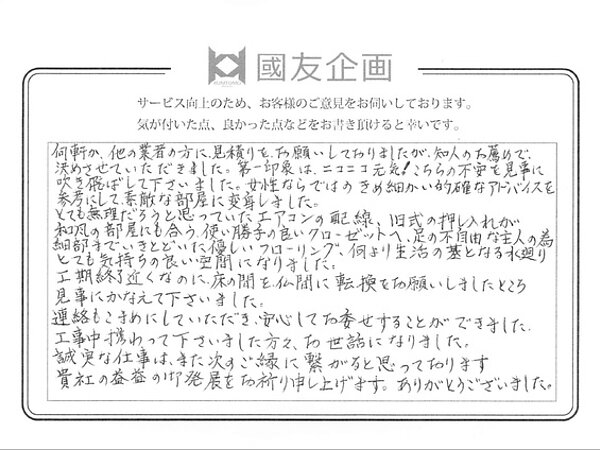 國友企画
サービス向上のため、お客様のご意見をお伺いしております。
気が付いた点、良かった点などをお書き頂けると幸いです。
何軒か、他の業者の方に、見積りをお願いしておりましたが、知人のお薦めで、
決めさせていただきました。第一印象は、ニコニコ元気!こちらの不安を見事に
吹き飛ばして下さいました。女性ならではのきめ細かい的確なアドバイスを
参考にして、素敵な部屋に変身しました。
とても無理だろうと思っていたエアコンの配線、旧式の押し入れが
和風の部屋にも合う、使い勝手の良いクローゼットへ、足の不自由な主人の為
細部までいきとどいた優しいフローリング、何より生活の基となる水廻り
とても気持ちの良い空間になりました。
工期終了近くなのに、床の間を仏間に転換をお願いしましたところ
見事にかなえて下さいました。
連絡もこまめにしていただき、安心してお委せすることができました。
工事中携わって下さいました方々、お世話になりました。
誠実な仕事は、また次のご縁に繋がると思っております
貴社の益益の御発展をお祈り申し上げます。ありがとうございました。